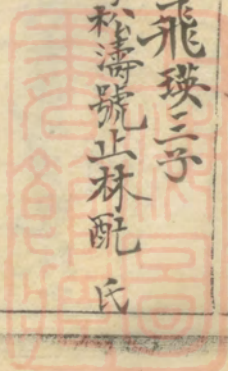 飛瑛三子
松濤號止林配 氏